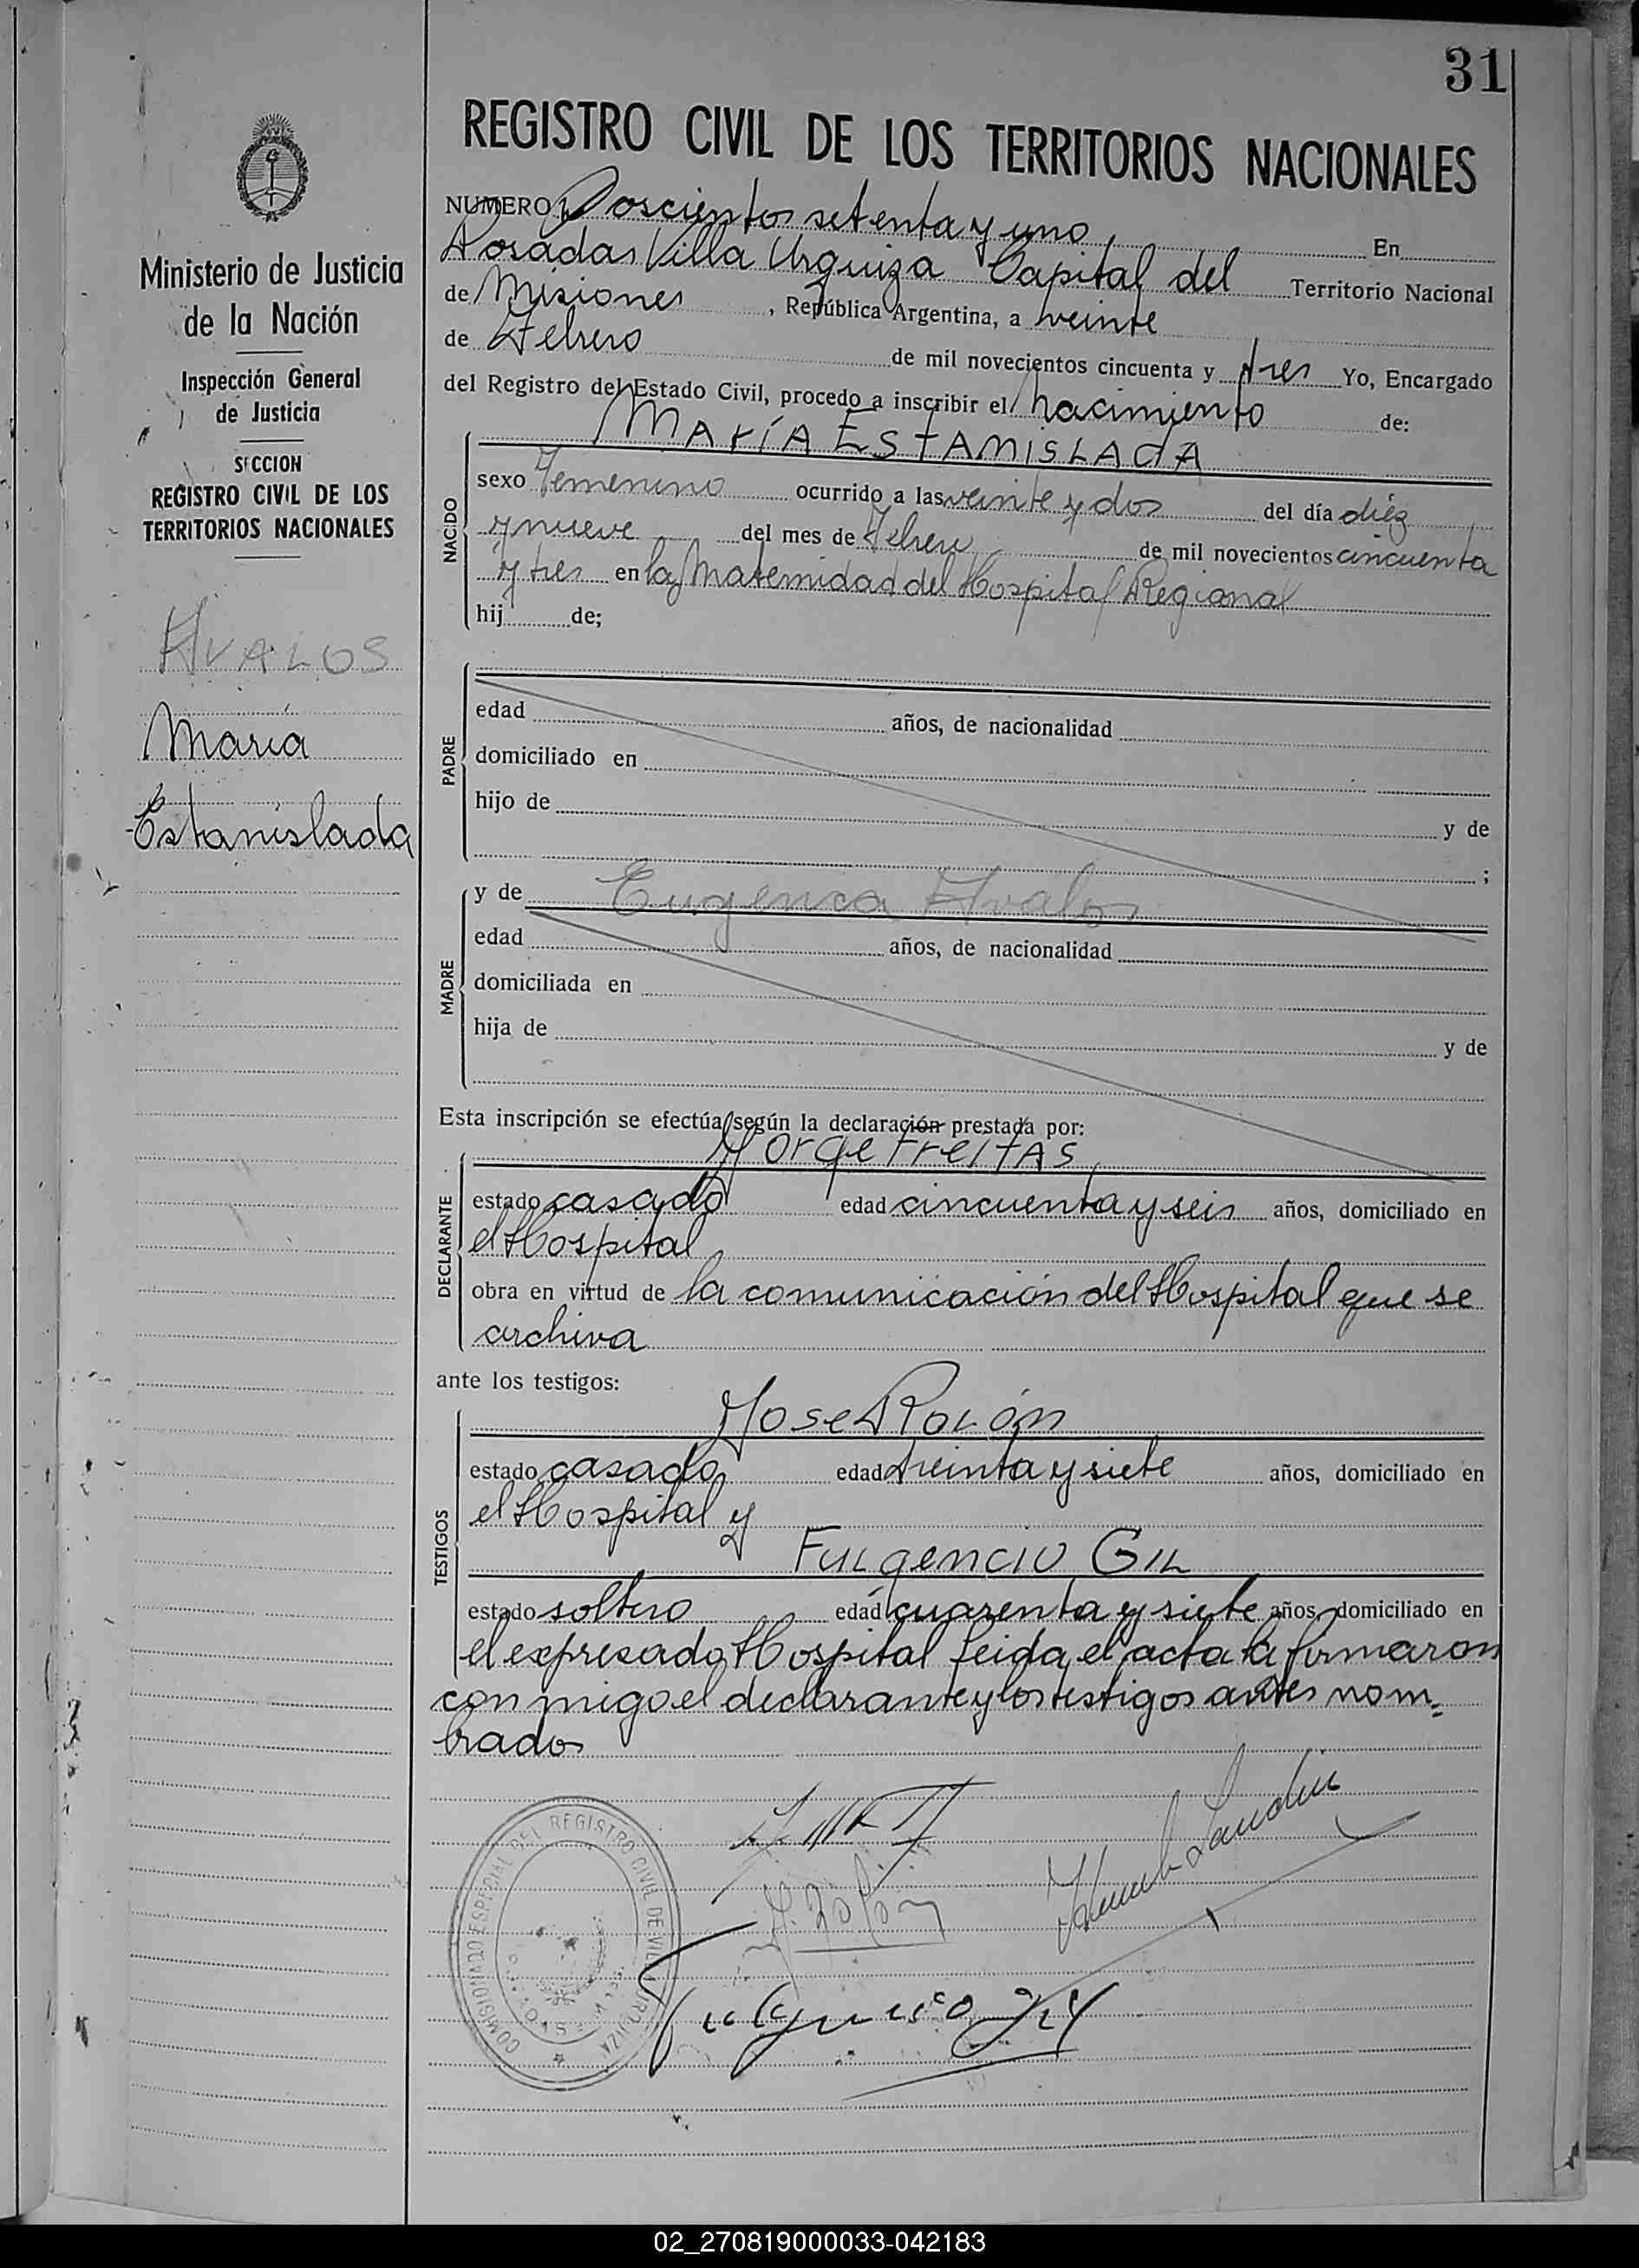 31
REGISTRO CIVIL DE LOS TERRITORIOS NACIONALES
Ministerio de Justicia
de la Nación
Inspección General
de Justicia
SECCION
REGISTRO CIVIL DE LOS
TERRITORIOS NACIONALES
AVALOS
María
Estanislada
NUMERO Doscientos setenta y uno, En
Posadas Villa Urquiza Capital del Territorio Nacional
de Misiones, República Argentina, a veinte
de Febrero de mil novecientos cincuenta y tres Yo, Encargado
del Registro del Estado Civil, procedo a inscribir el nacimiento de:
NACIDO
MARÍA ESTANISLADA
sexo Femenino ocurrido a las veinte y dos del día diéz
y nueve del mes de Febrero de mil novecientos cincuenta
y tres en la Maternidad del Hospital Regional
hij de;
PADRE
edad años, de nacionalidad
domiciliado en
hijo de y de
;
MADRE
y de Eugenia Avalos
edad años, de nacionalidad
domiciliada en
hija de y de
Esta inscripción se efectúa según la declaración prestada por:
DECLARANTE
Jorge Freitas
estado casado edad cincuenta y seis años, domiciliado en
el Hospital,
obra en virtud de la comunicación del Hospital que se
archiva
ante los testigos:
TESTIGOS
Jose Rolón
estado casado, edad treinta y siete años, domiciliado en
el Hospital y
Fulgencio Gil
estado soltero edad cuarenta y siete años, domiciliado en
el expresado Hospital leida el acta la firmaron
conmigo el declarante y los testigos antes nom=
brados
COMISIONADO ESPECIAL DEL REGISTRO CIVIL DE VILLA URQUIZA
MISIONES
J. Rolón
Fulgencio Gil
02_270819000033-042183